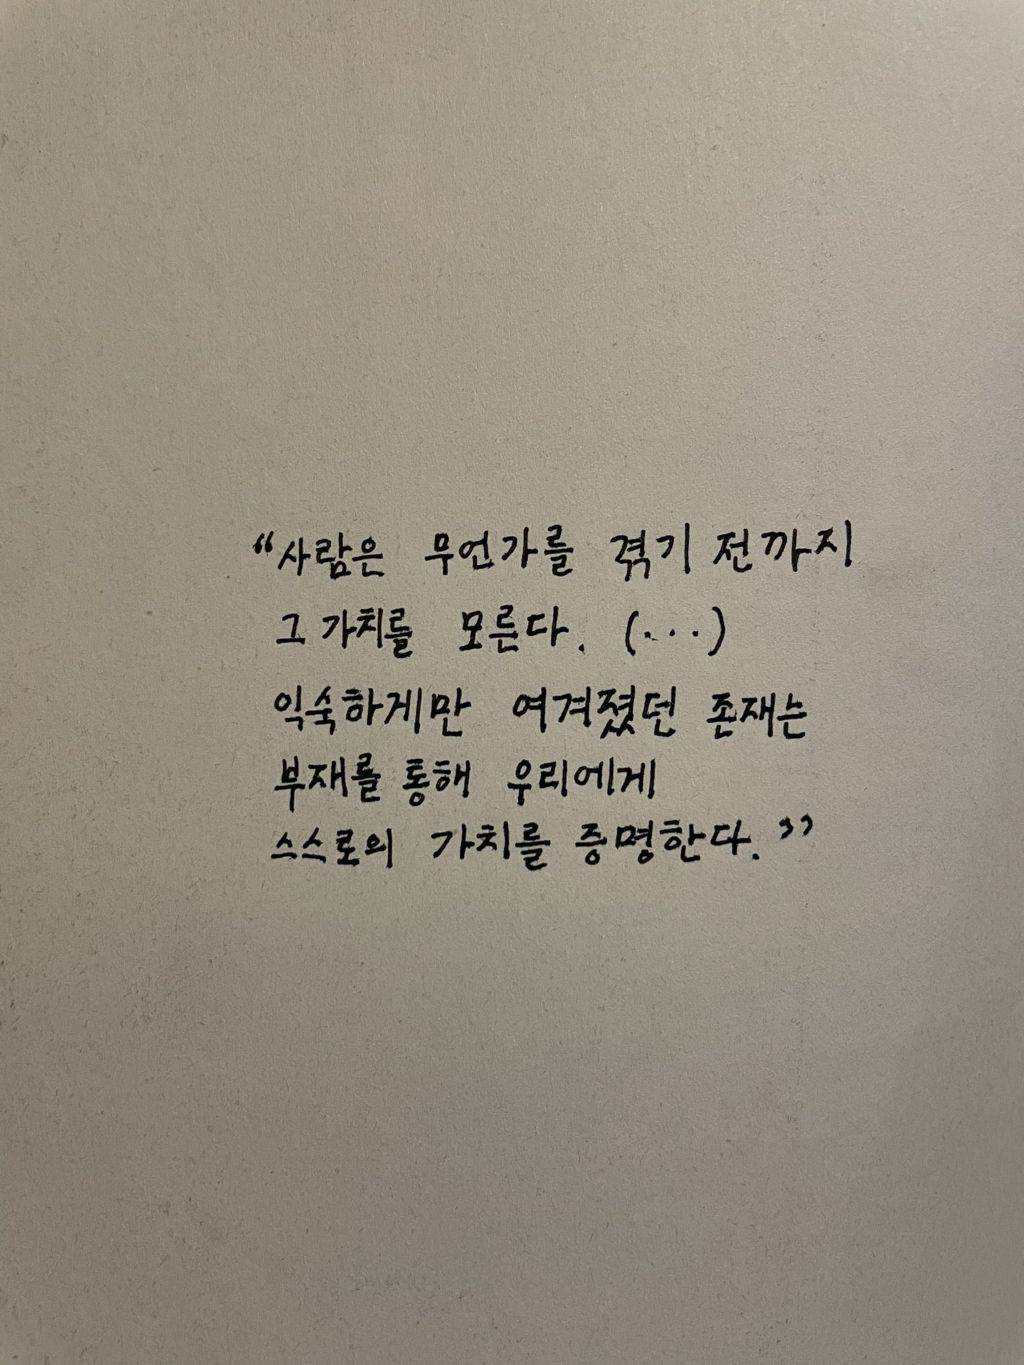 “사람은 무언가를 겪기 전까지
그 가치를 모른다. (...)
익숙하게만 여겨졌던 존재는
부재를 통해 우리에게
스스로의 가치를 증명한다.”